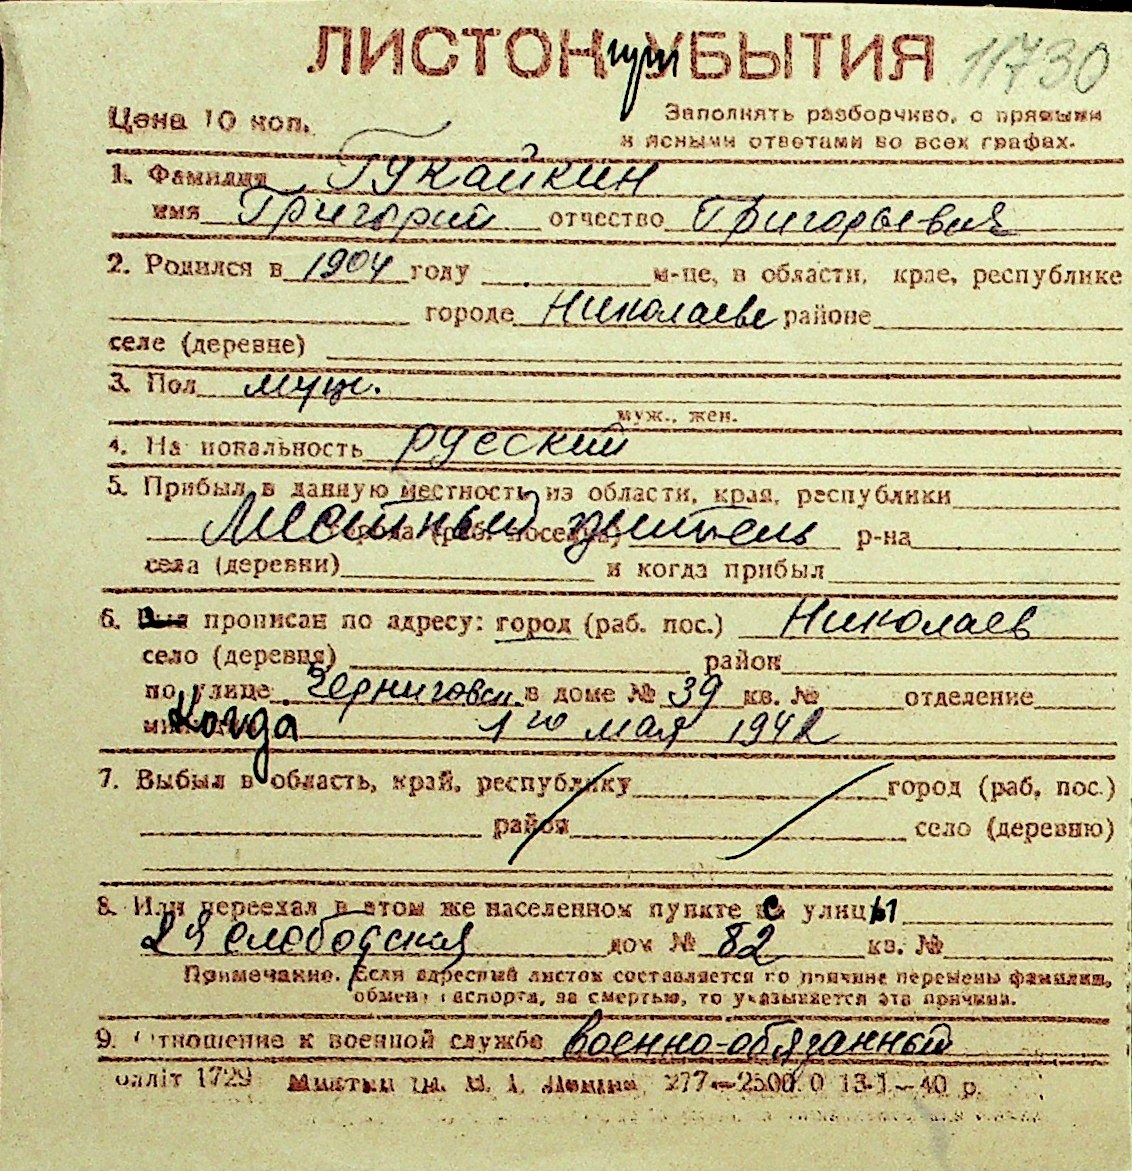 ЛИСТОК при УБЫТИЯ 11730
Цена 10 коп.
Заполнять разборчиво, с прямыми
и ясными ответами во всех графах.
1. Фамилия Гукайкин
имя Григорий отчество Григорьевич
2. Родился в 1904 году м-це, в области, крае, республике
городе Николаеве районе
селе (деревне)
3. Пол муж.
муж., жен.
4. Национальность русский
5. Прибыл в данную местность из области, края, республики
Местный житель
города (раб. поселка) р-на
села (деревни) и когда прибыл
6. прописан по адресу: город (раб. пос.) Николаев
село (деревня) район
по улице Черниговск. в доме № 39 кв. № отделение
Когда 1го мая 1942
7. Выбыл в область, край, республику город (раб. пос.)
район село (деревню)
8. Или переехал в этом же населенном пункте с улицы
2я Слободская дом № 82 кв. №
Примечание. Если адресный листок составляется по причине перемены фамилии,
обмена паспорта, за смертью, то указывается эта причина.
9. Отношение к военной службе военно-обязанный
олліт 1729 277—2500.0 13-1—40 р.